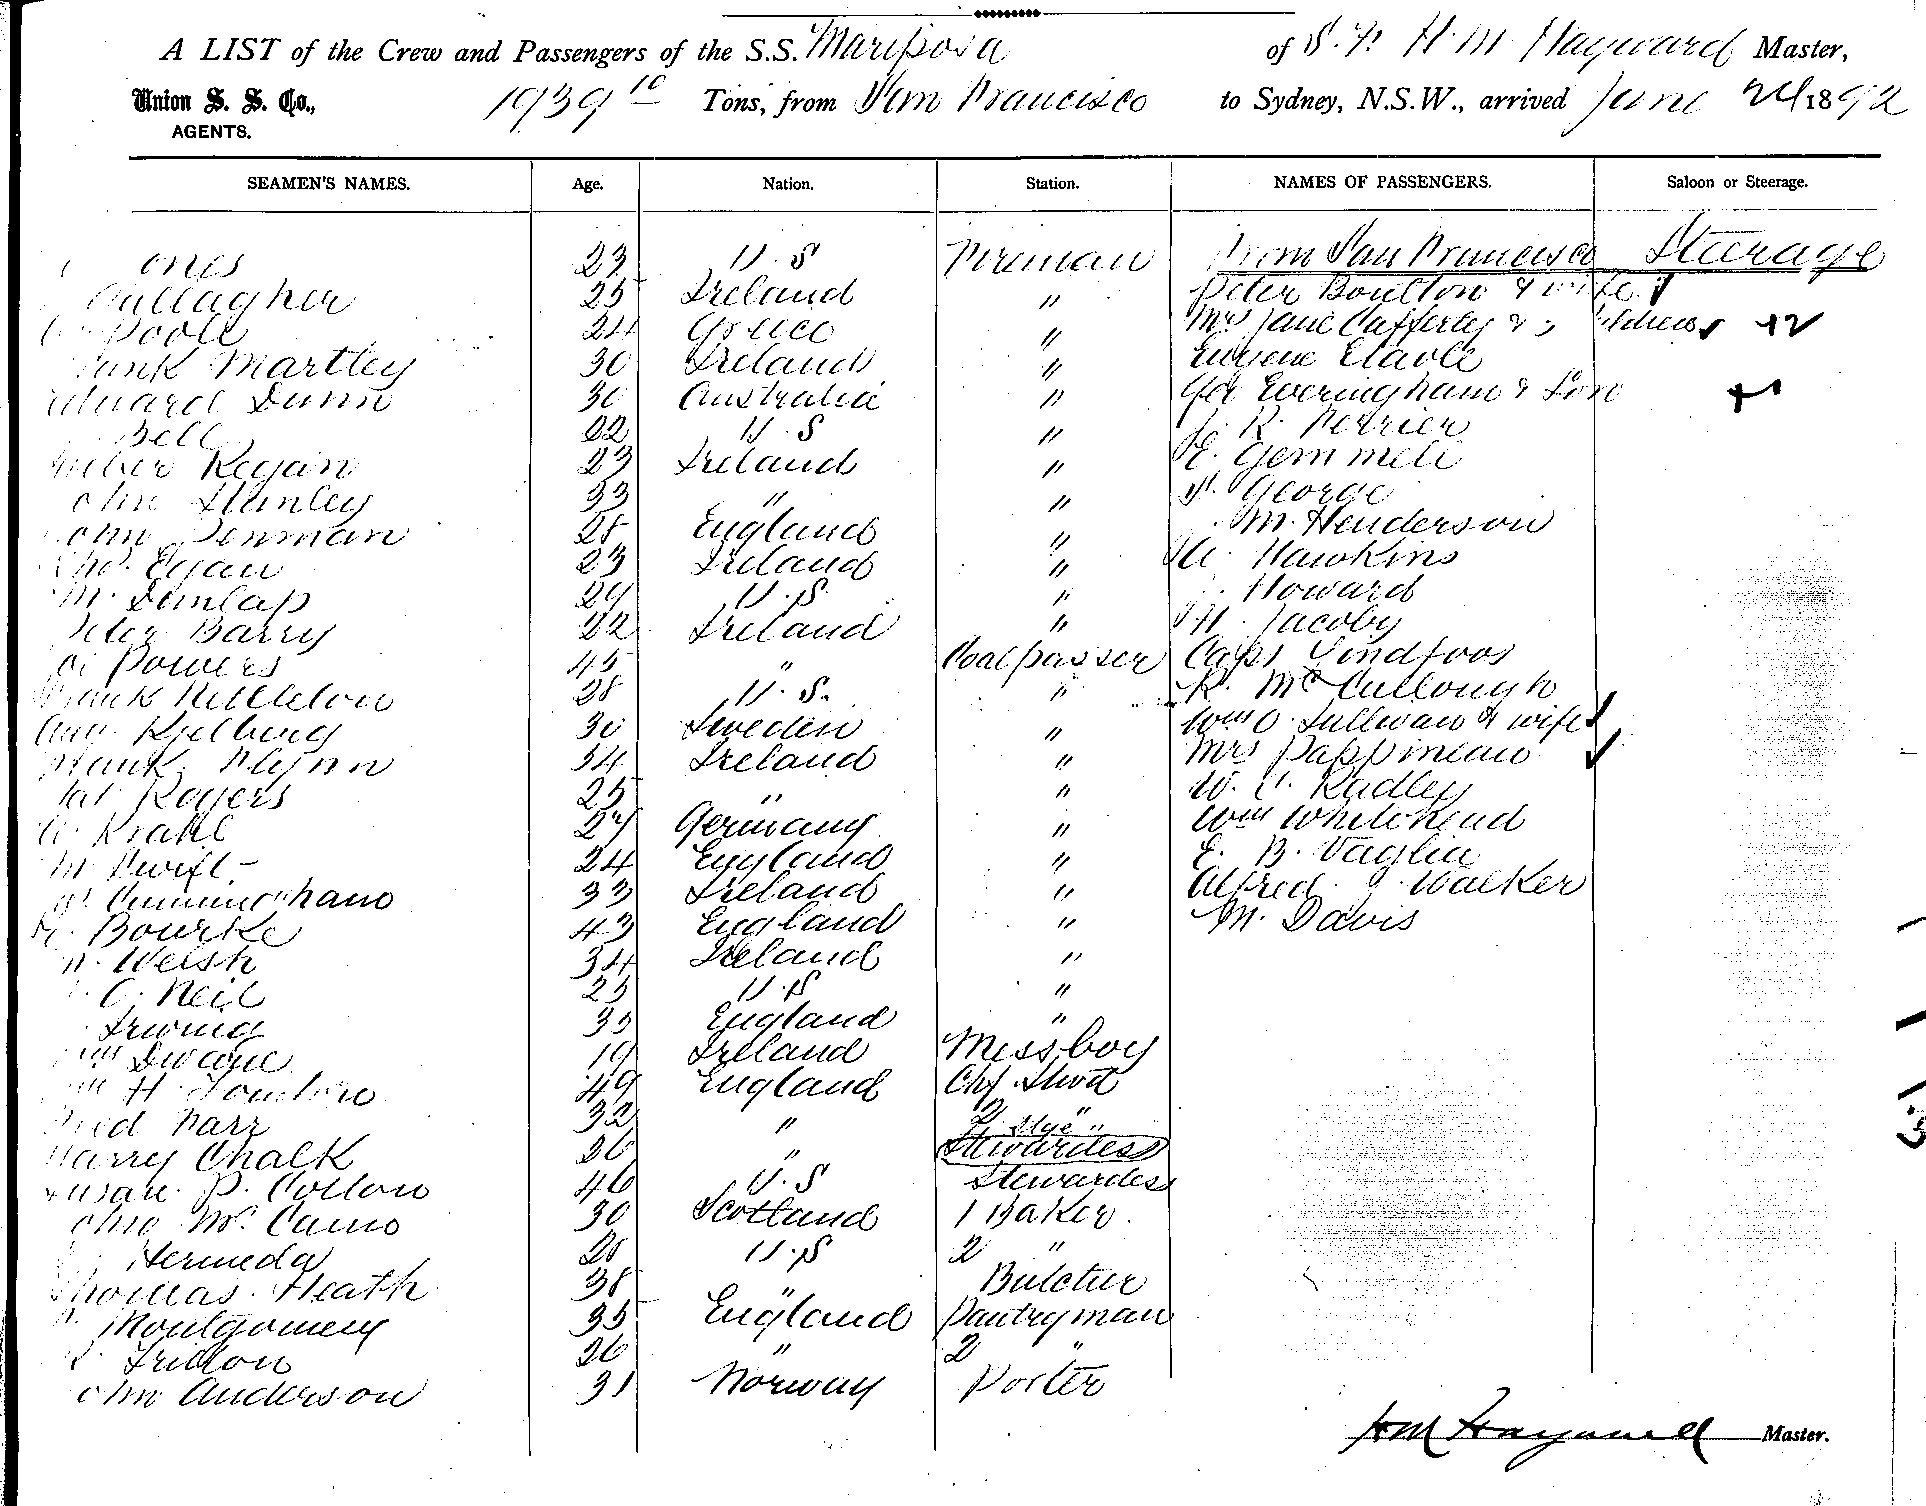 A LIST of the Crew and Passengers of the S.S. Mariposa of S. F. H. M. Hayward Master,
Union S. S. Co., AGENTS. 1939 Tons, from San Francisco to Sydney, N.S.W., arrived June 24 1892
SEAMEN'S NAMES. Age. Nation. Station. NAMES OF PASSENGERS. Saloon or Steerage.
ones 23 U.S Fireman From San Francisco Steerage
Gallagher 25 Ireland " Peter Boulton & wife
Poole 24 Greece " Mrs Jane Cafferty & 2
Martley 30 Ireland " Eugene
Edward Dunn 30 Australia " Everingham & Son
Bell 22 U.S " R. Perrier
Regan 23 Ireland " Gemmell
ohn Stanley 33 " " George
ohn Denman 28 England " M. Henderson
Thos. Egan 23 Ireland " Hawkins
M. Dunlap 29 U.S. " Howard
Peter Barry 22 Ireland " H. Jacoby
Powers 45 " Coal passer Capt
Frank Nettleton 28 U.S. " R. McCullough
Aug. Kjelberg 30 Sweden " Wm O. Sullivan & wife
Frank Flynn 34 Ireland " Mrs Pappineau
Pat Rogers 25 " " W. C. Radley
Krahl 27 Germany " Wm Whitehead
M Swift 24 England " E. B. Vaglia
Cunningham 33 Ireland " Alfred J Walker
Bourke 43 England " M. Davis
Welsh 34 Ireland "
O. Neil 25 U.S "
Irwing 35 England "
Wm Dwane 19 Ireland Messboy
Wm H. 49 England Chf. Stwd
Fred Farr 32 " 2 "
Harry Chalk 26 " Stge " Stewardess
Susan. P. Colton 46 U.S Stewardess
ohn McCann 30 Scotland 1 Baker
Hermeda 28 U.S 2 "
Thomas. Heath 38 " Butcher
Montgomery 35 England Pantryman
Fritton 26 " 2 "
ohn Anderson 31 Norway Porter
HM Hayward Master.